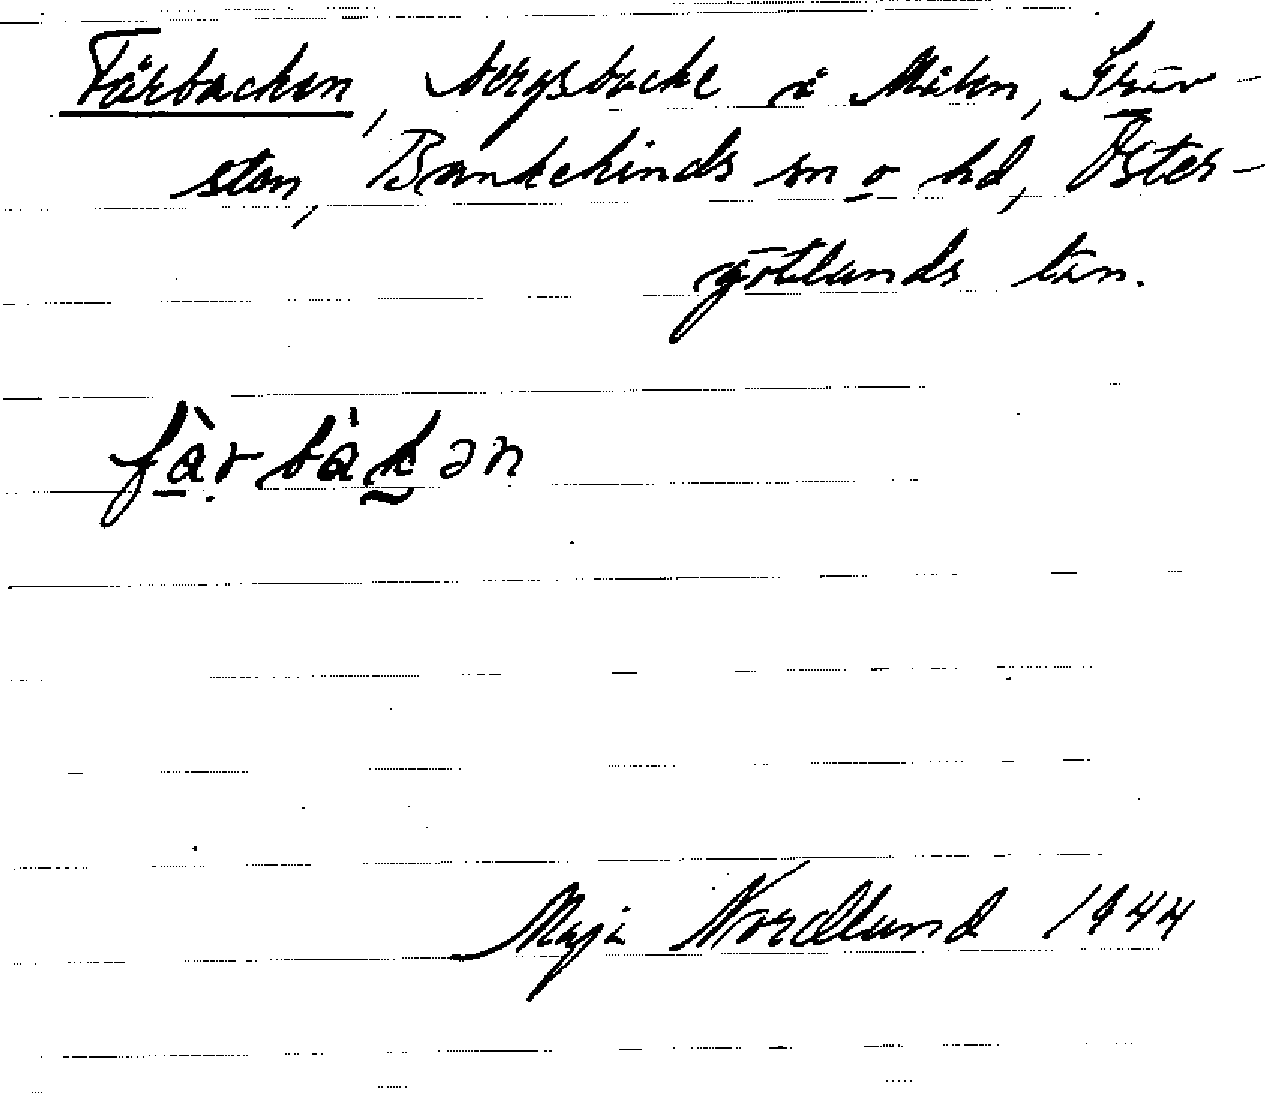 Fårbacken, bergsbacke i Målen, Grav-
sten, Bankekinds sn o hd, Öster-
götlands län.
fàrbàkən
Maja Nordlund 1944